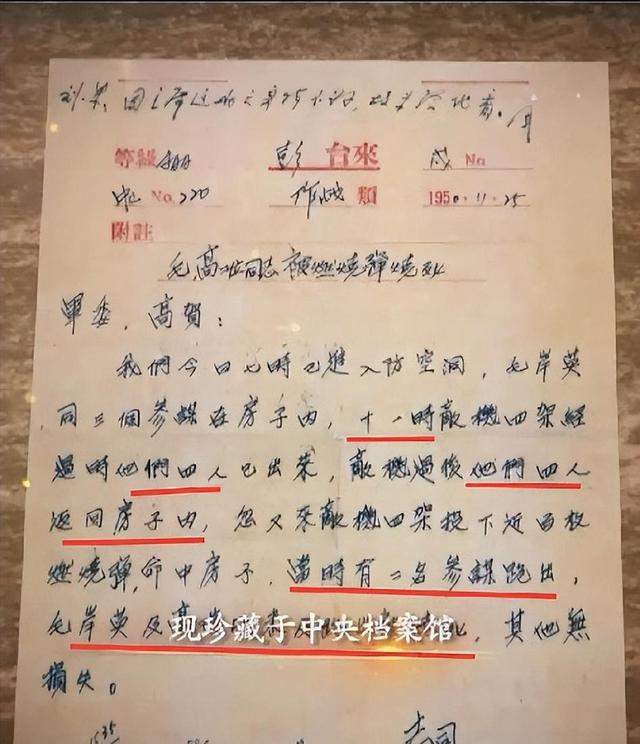 等級 彭 台來 戌 No
No. 220 作战 類 1950.11.25
附註
毛、高二位同志被燃燒彈燒死
軍委，高賀：
我們今日七時已進入防空洞，毛岸英
同三個參謀在房子內，十一時敵機四架經
過時他們四人已出來，敵機過後他們四人
返回房子內，忽又來敵機四架投下近百枚
燃燒彈，命中房子，當時有二名參謀跑出，
毛岸英及高 其他無
现珍藏于中央档案馆
損失。
志司